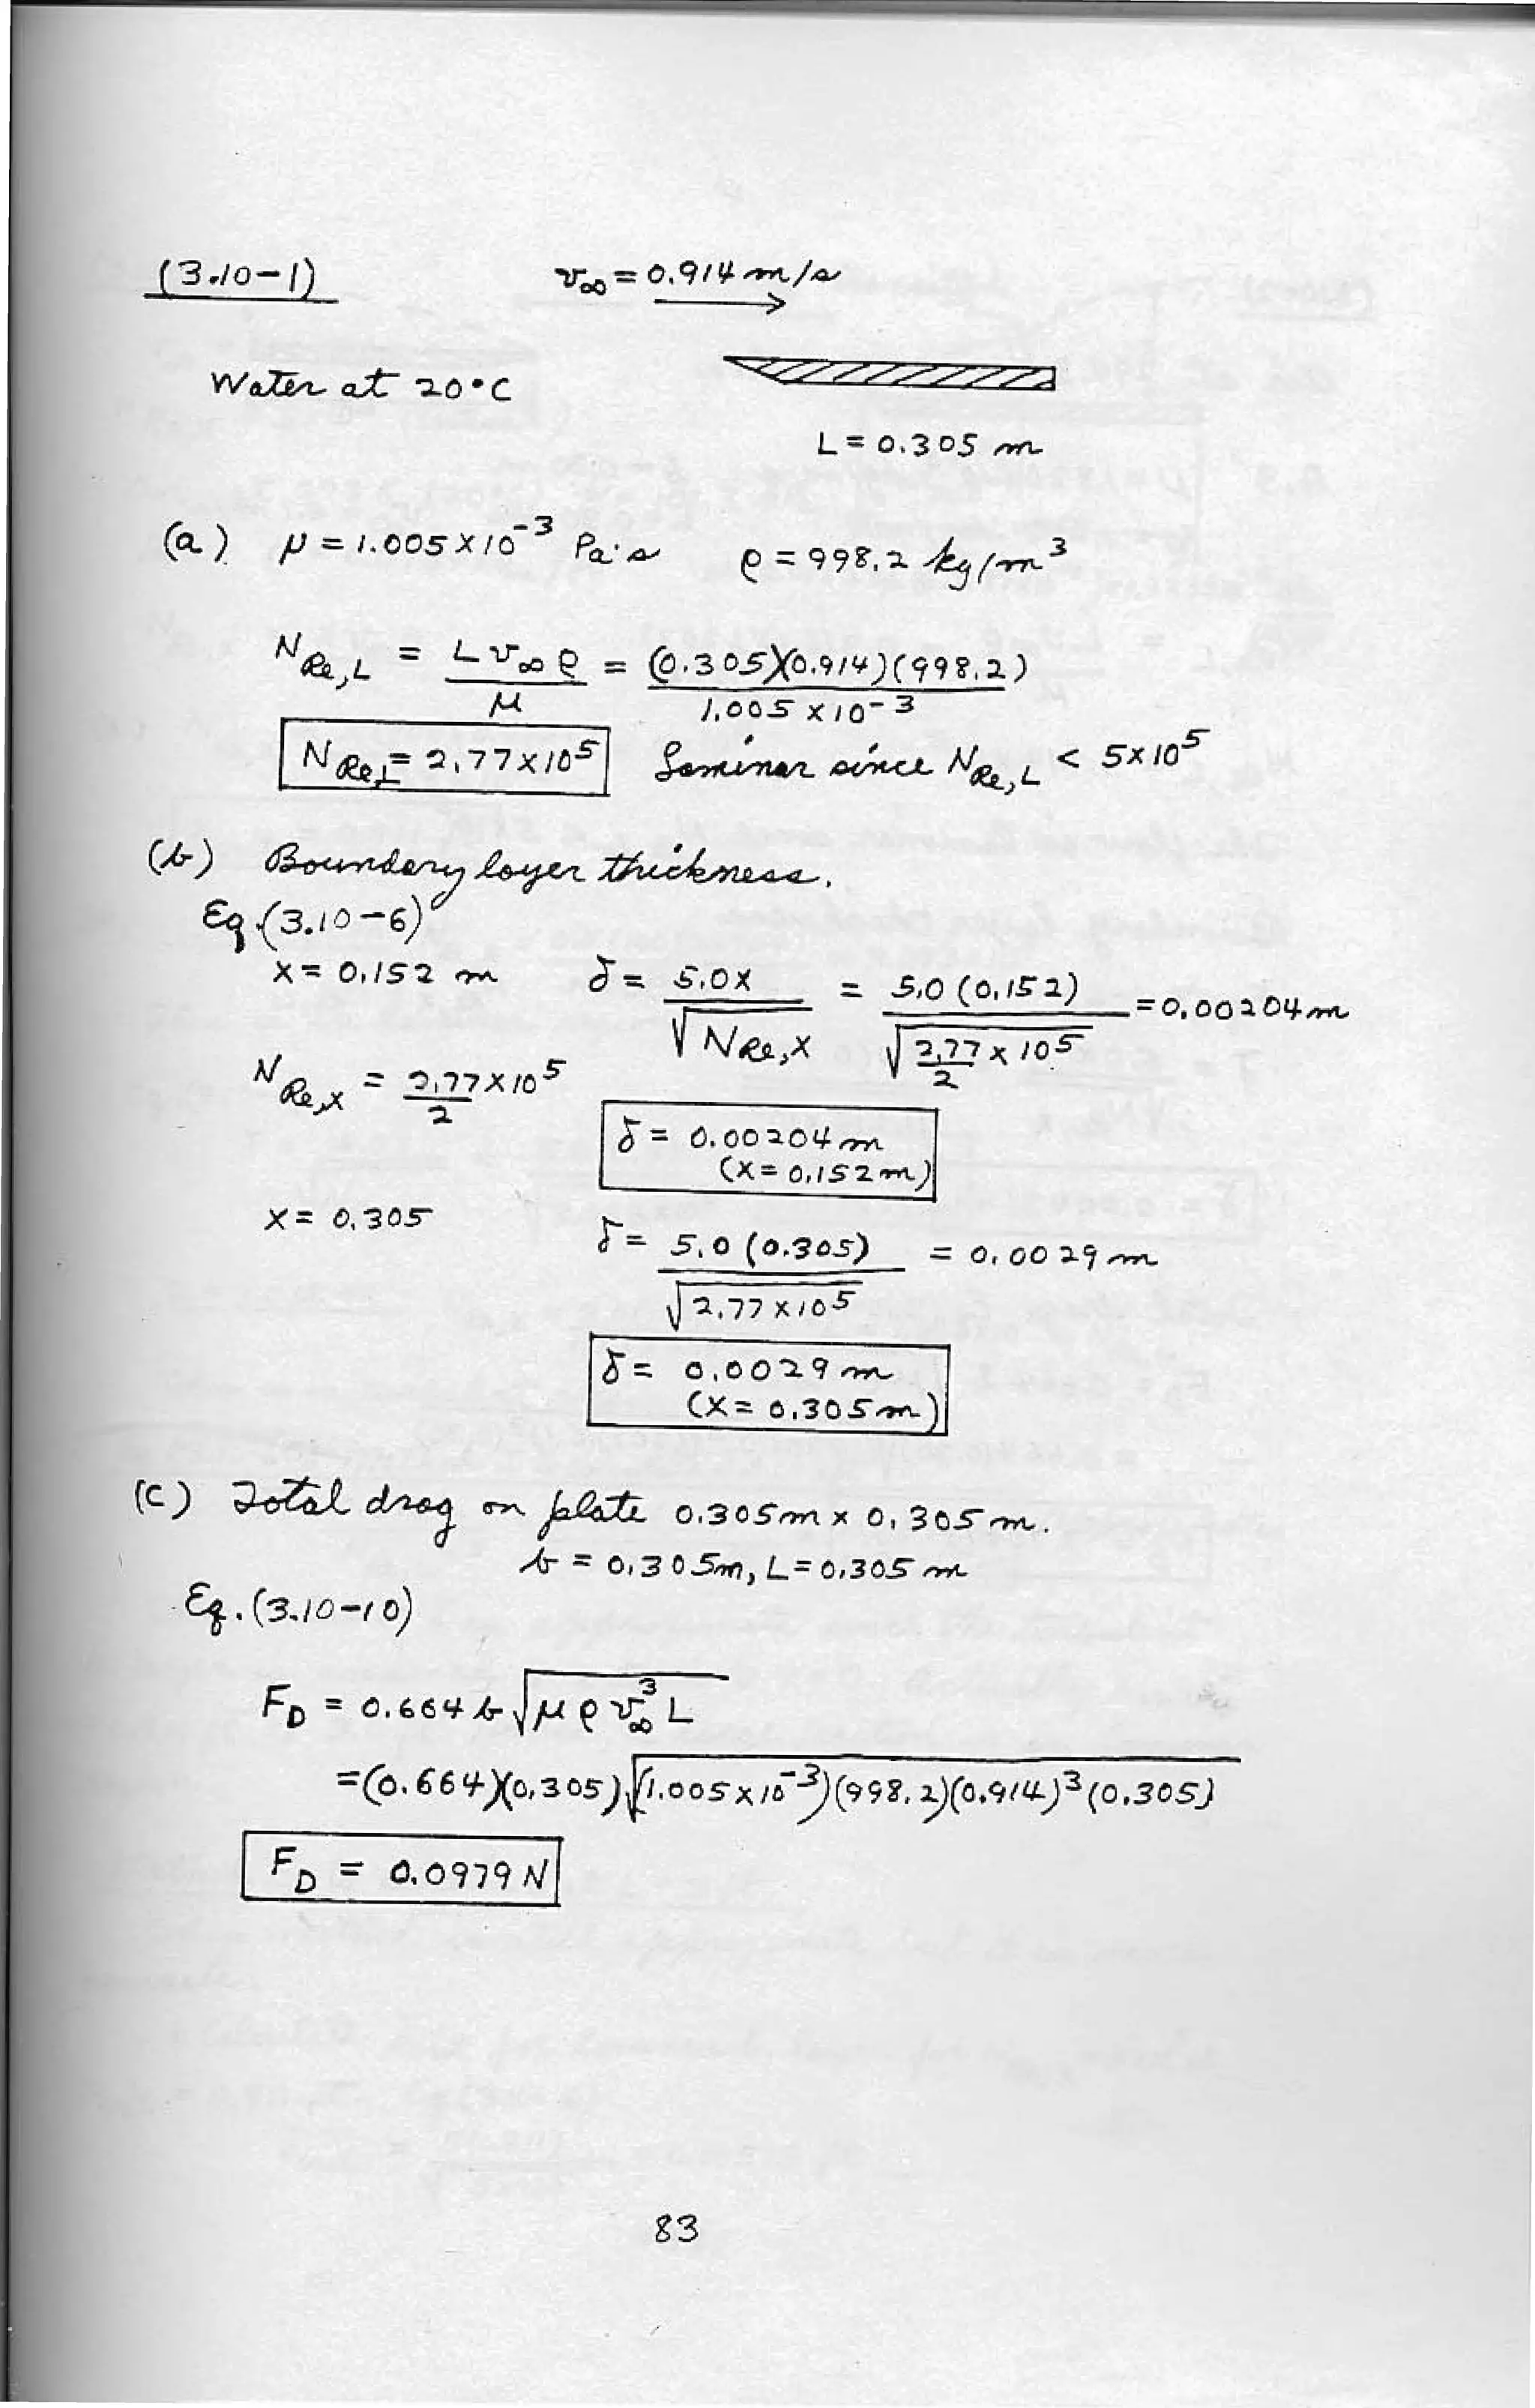 (3.10-1)
v∞ = 0.914 m/s
Water at 20°C
L = 0.305 m
(a) μ = 1.005 x 10^-3 Pa·s ρ = 998.2 kg/m^3
N_Re,L = L v∞ ρ / μ = (0.305)(0.914)(998.2) / 1.005 x 10^-3
N_Re,L = 2.77 x 10^5 Laminar since N_Re,L < 5 x 10^5
(b) Boundary layer thickness.
Eq.(3.10-6)
x = 0.152 m δ = 5.0x / √N_Re,x = 5.0 (0.152) / √(2.77 x 10^5 / 2) = 0.00204 m
N_Re,x = 2.77 x 10^5 / 2
δ = 0.00204 m
(x = 0.152 m)
x = 0.305 δ = 5.0 (0.305) / √2.77 x 10^5 = 0.0029 m
δ = 0.0029 m
(x = 0.305 m)
(c) Total drag on plate 0.305 m x 0.305 m.
b = 0.305 m, L = 0.305 m
Eq.(3.10-10)
F_D = 0.664 b √(μ ρ v∞^3 L)
= (0.664)(0.305) √((1.005 x 10^-3)(998.2)(0.914)^3 (0.305))
F_D = 0.0979 N
83